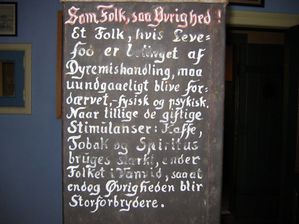 Som Folk, saa Øvrighed!
Et Folk, hvis Leve-
fod er betinget af
Dyremishandling, maa
uundgaaeligt blive for-
dærvet, fysisk og psykisk.
Naar tillige de giftige
Stimulanser: Kaffe,
Tobak og Spiritus
bruges stærkt, ender
Folket i Vanvid, saa at
endog Øvrigheden blir
Storforbrydere.